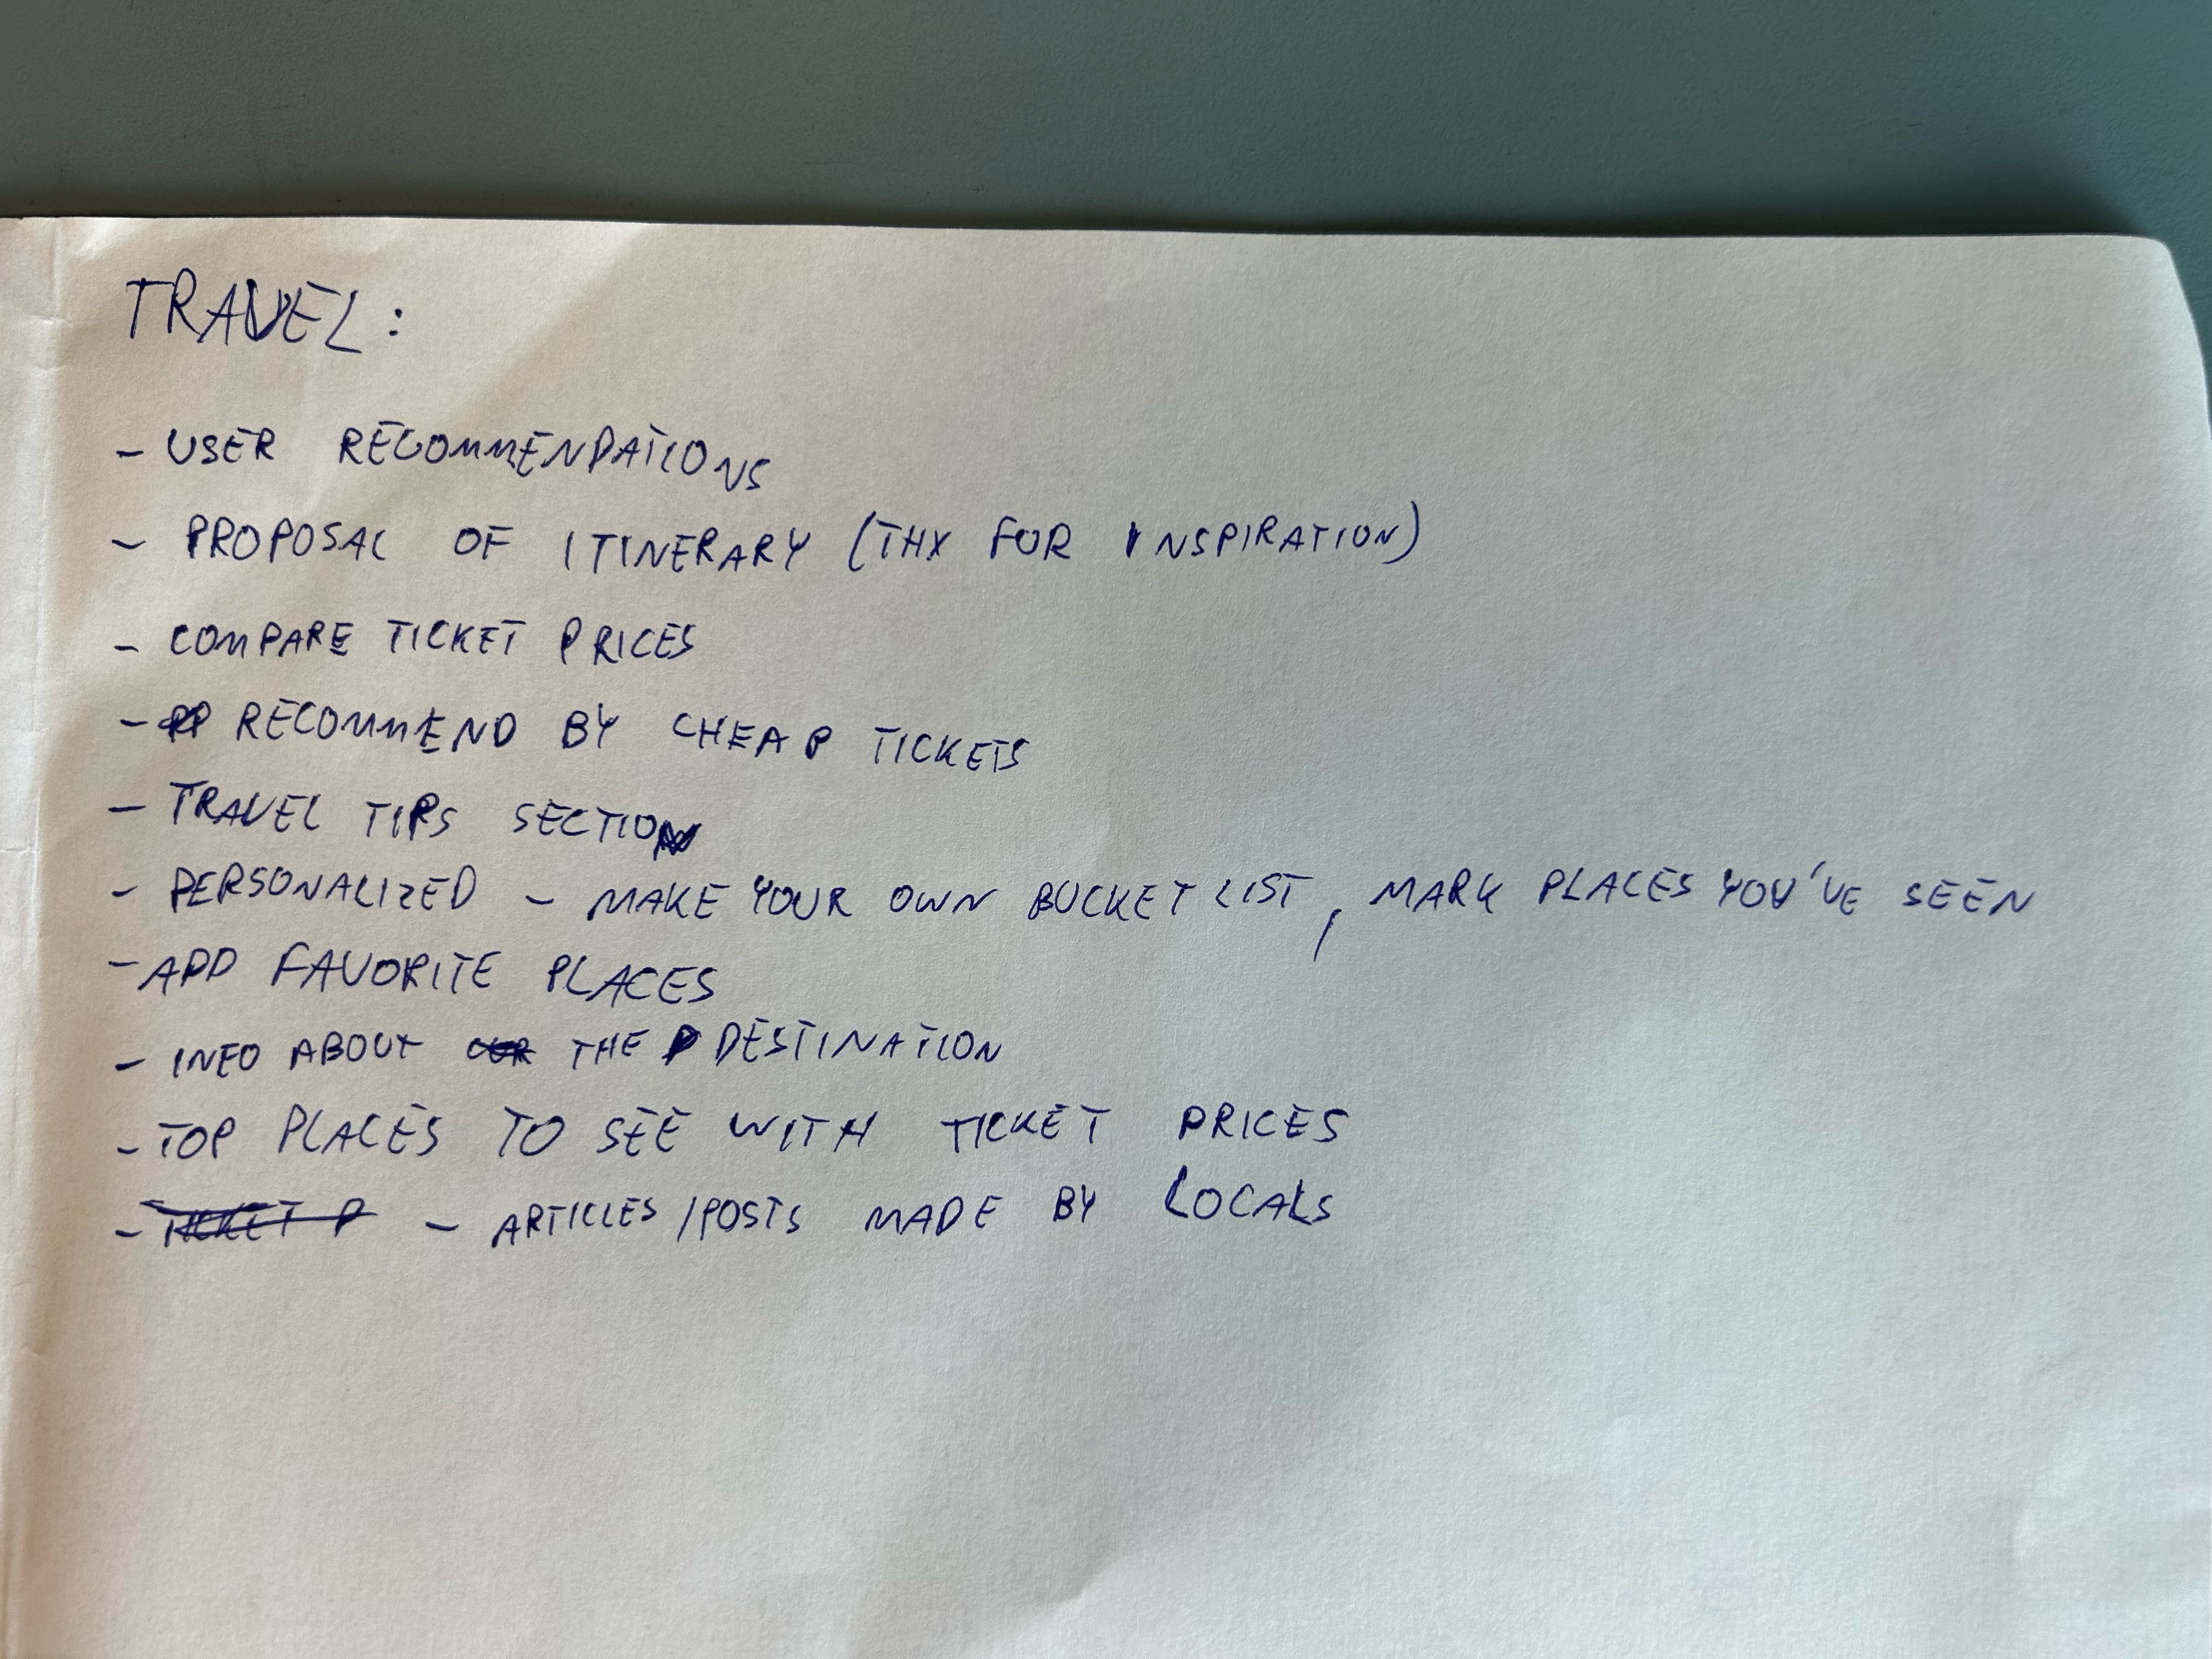 TRAVEL:
- USER RECOMMENDATIONS
- PROPOSAL OF ITINERARY (THX FOR INSPIRATION)
- COMPARE TICKET PRICES
- RECOMMEND BY CHEAP TICKETS
- TRAVEL TIPS SECTION
- PERSONALIZED - MAKE YOUR OWN BUCKET LIST, MARK PLACES YOU'VE SEEN
- ADD FAVORITE PLACES
- INFO ABOUT THE DESTINATION
- TOP PLACES TO SEE WITH TICKET PRICES
- TICKET P - ARTICLES/POSTS MADE BY LOCALS